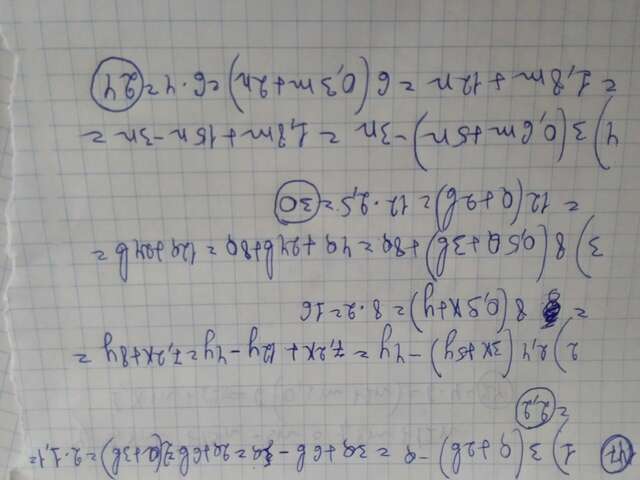 47 1) 3(a+2b)-a = 3a+6b-a=2a+6b=2(a+3b)=2·1,1=
=2,2
2) 2,4(3x+5y)-4y=7,2x+12y-4y=7,2x+8y=
= 8(0,9x+y)=8·2=16
3) 8(0,5a+3b)+8a=4a+24b+8a=12a+24b=
=12(a+2b)=12·2,5=30
4) 3(0,6m+5n)-3n=1,8m+15n-3n=
=1,8m+12n=6(0,3m+2n)=6·4=24